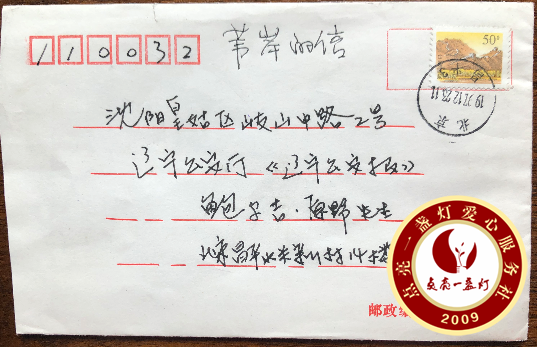 110032
苇岸的信
50分
北京
沈阳皇姑区岐山中路2号
辽宁公安厅《辽宁公安报》
鲍尔吉·原野先生
北京昌平水关
邮政编
点亮一盏灯爱心服务社
点亮一盏灯
2009